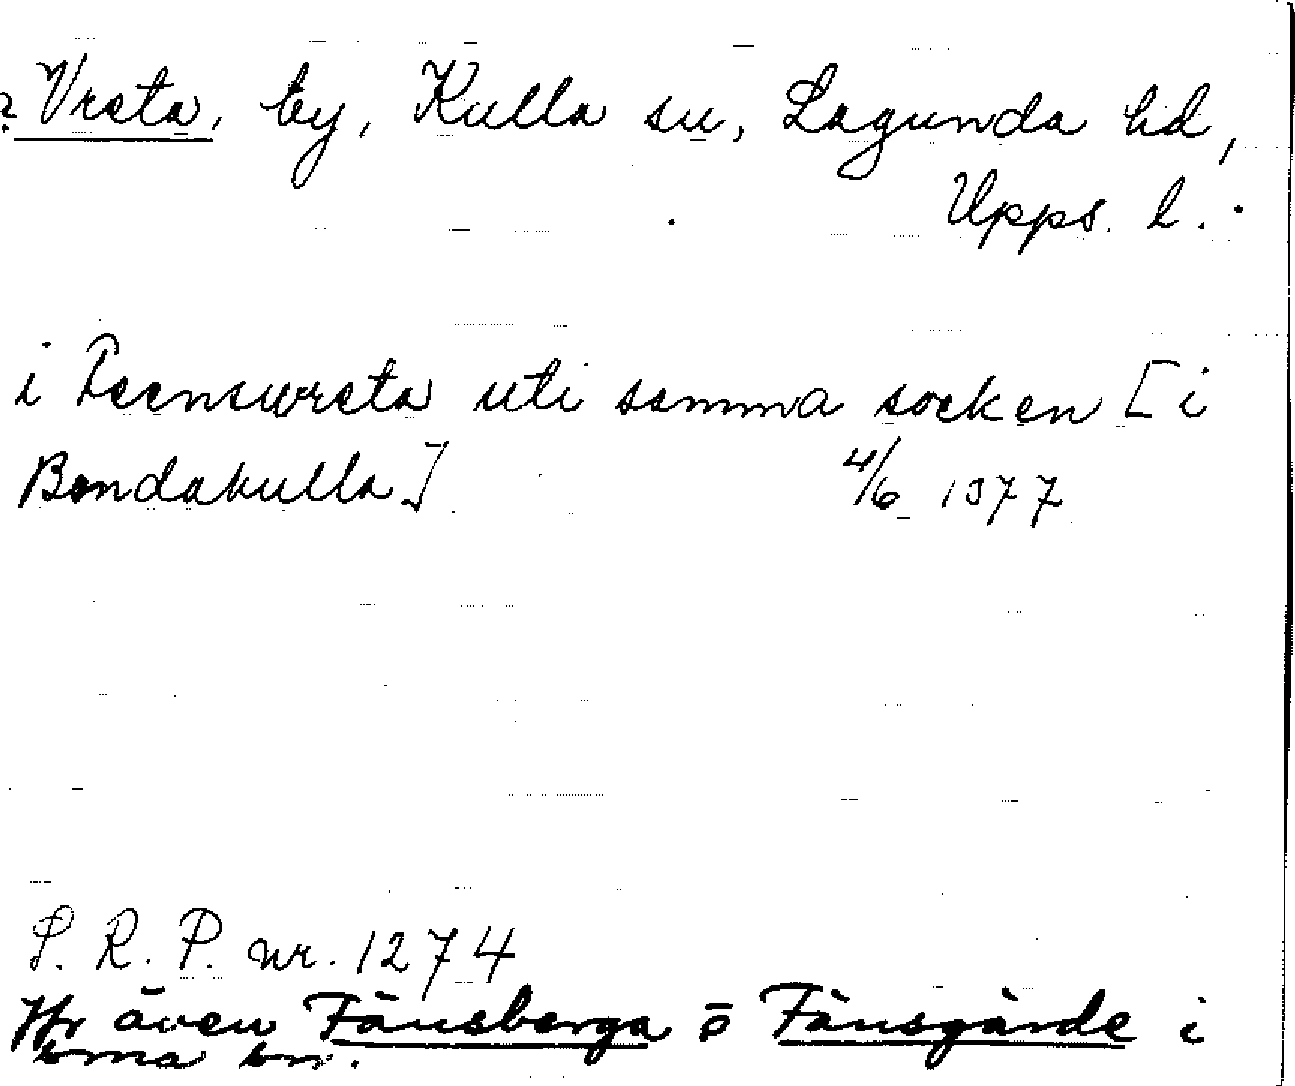 ? Vreta, by, Kulla sn, Lagunda hd,
Upps. l.
i Feenswreta uti samma socken [i
Bondakulla] 4/6 1377
S. R. P. nr. 1274
Jfr även Fänsberga o Fänsgärde i
sma sn.